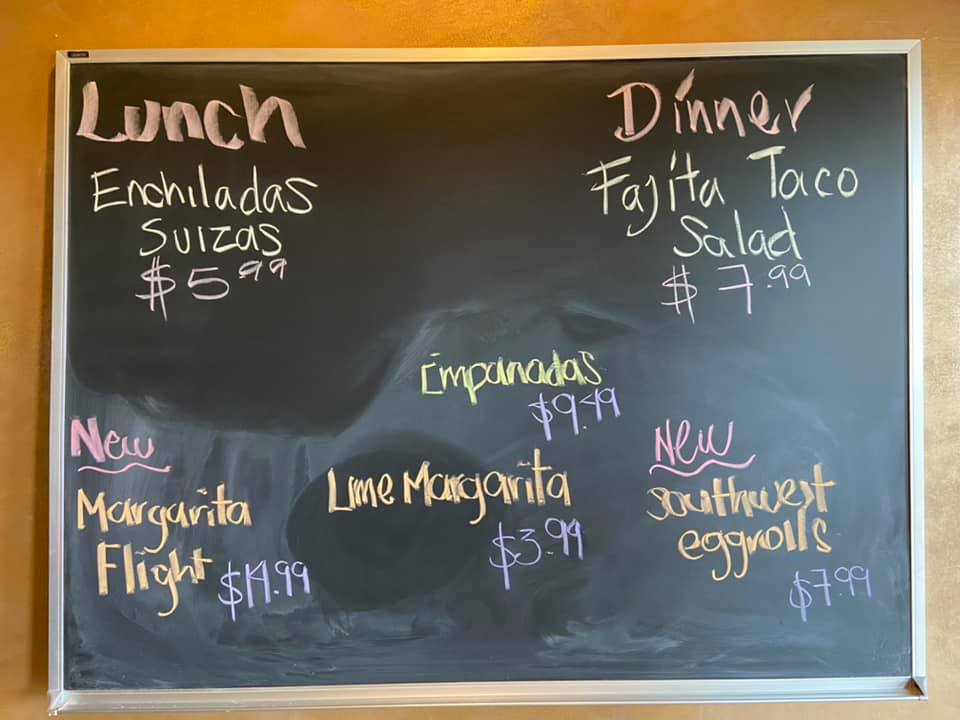 Lunch
Enchiladas
Suizas
$5.99
Dinner
Fajita Taco
Salad
$7.99
Empanadas
$9.49
New
Margarita
Flight $14.99
Lime Margarita
$3.99
New
Southwest
eggrolls
$7.99